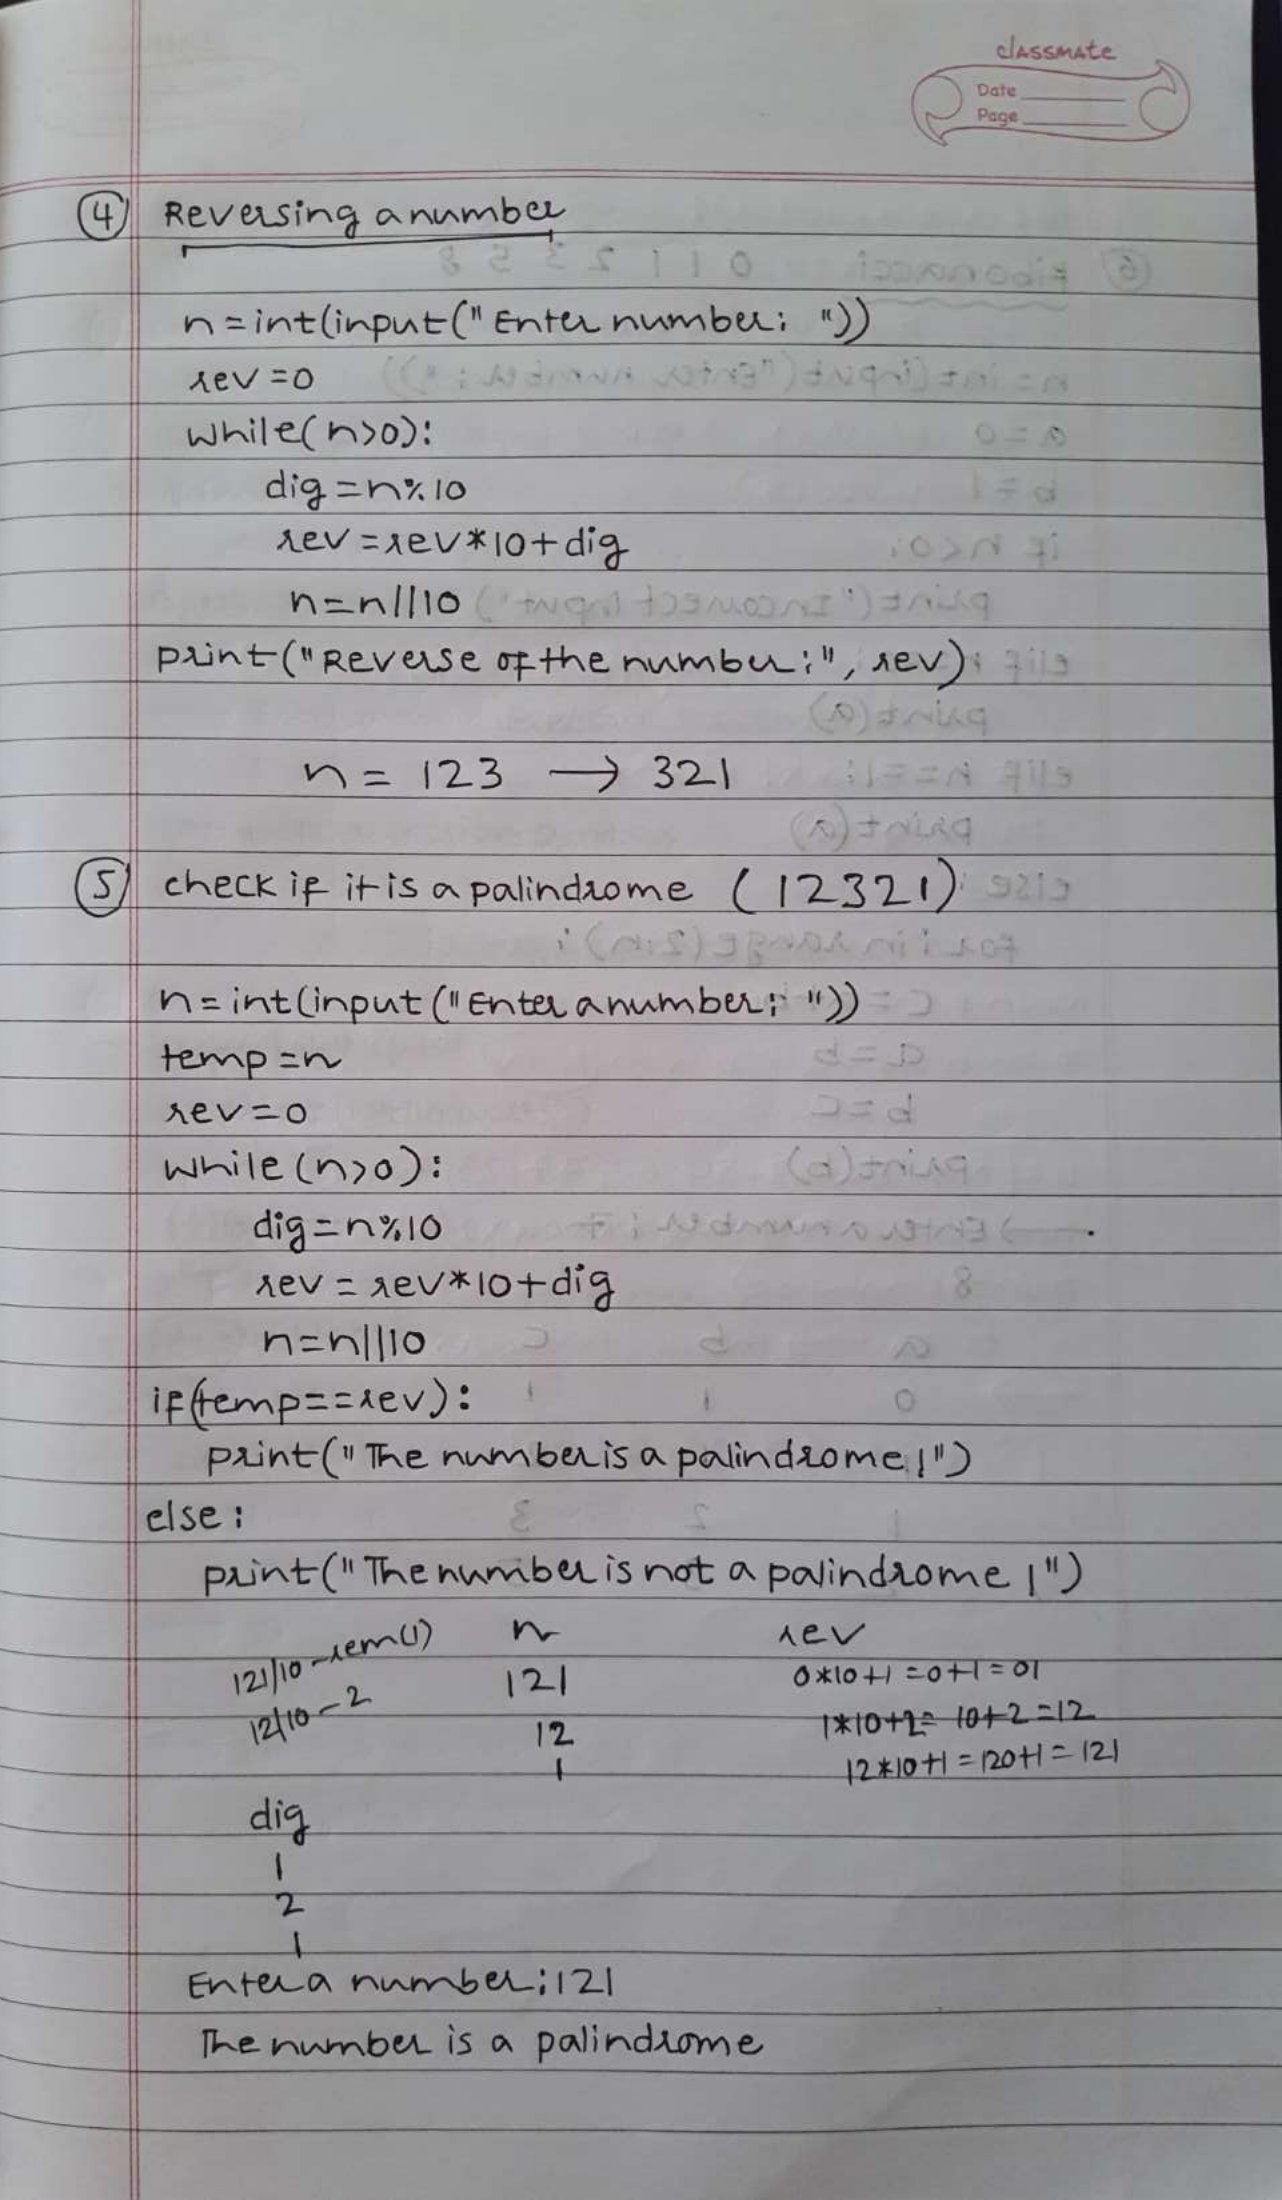 classmate
Date
Page
4 Reversing a number
n=int(input("Enter number: "))
rev=0
while(n>0):
dig=n%10
rev=rev*10+dig
n=n//10
print("Reverse of the number:", rev)
n = 123 → 321
5 check if it is a palindrome (12321)
n=int(input("Enter a number: "))
temp=n
rev=0
while(n>0):
dig=n%10
rev=rev*10+dig
n=n//10
if(temp==rev):
print("The number is a palindrome!")
else:
print("The number is not a palindrome!")
121/10-rem(1) n rev
12/10-2 121 0*10+1=0+1=01
12 1*10+2=10+2=12
1 12*10+1=120+1=121
dig
1
2
1
Enter a number:121
The number is a palindrome